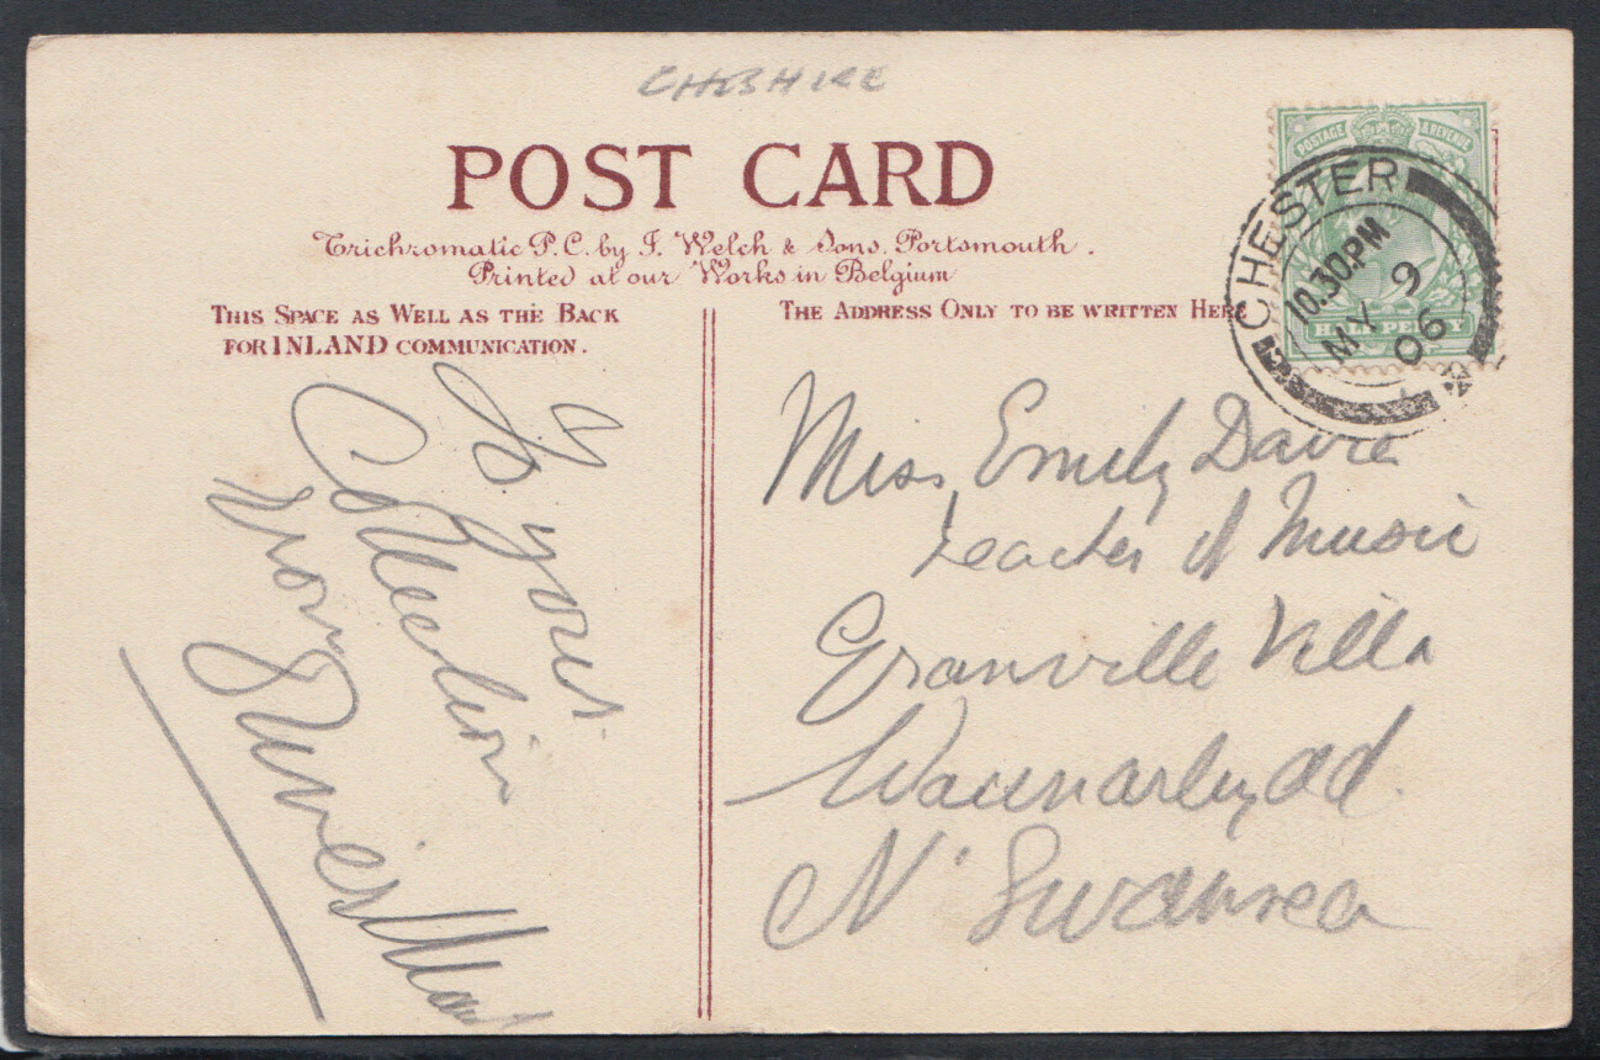 CHESHIRE
POST CARD
Trichromatic P.C. by J. Welch & Sons, Portsmouth.
Printed at our Works in Belgium
THIS SPACE AS WELL AS THE BACK
FOR INLAND COMMUNICATION.
THE ADDRESS ONLY TO BE WRITTEN HERE
POSTAGE & REVENUE
HALFPENNY
CHESTER
10.30.PM
MY 9
06
yours
Collection
from
Miss Emily Davie
teacher of Music
Granville Villa
N' Swansea